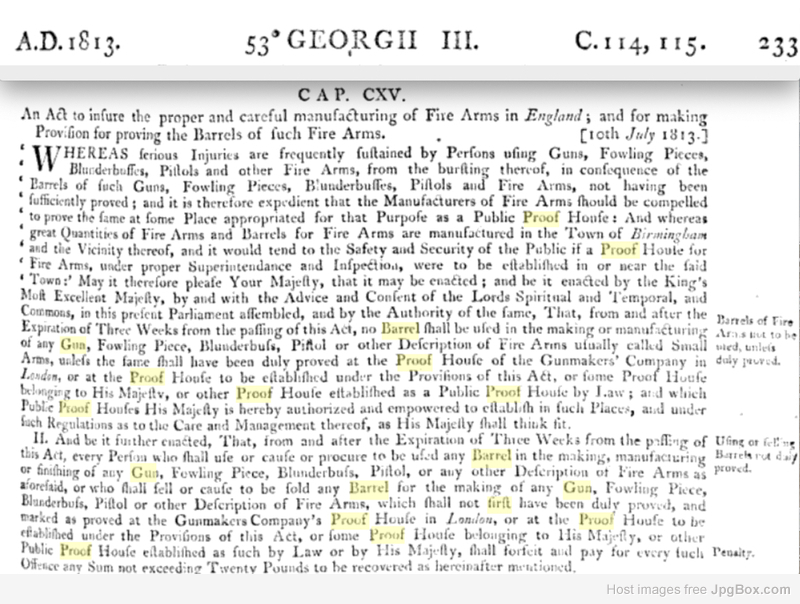 A.D. 1813. 53° GEORGII III. C. 114, 115. 233
CAP. CXV.
An Act to inſure the proper and careful manufacturing of Fire Arms in England; and for making
Proviſion for proving the Barrels of ſuch Fire Arms. [10th July 1813.]
‘ WHEREAS ſerious Injuries are frequently ſuſtained by Perſons uſing Guns, Fowling Pieces,
‘ Blunderbuſſes, Piſtols and other Fire Arms, from the burſting thereof, in conſequence of the
‘ Barrels of ſuch Guns, Fowling Pieces, Blunderbuſſes, Piſtols and Fire Arms, not having been
‘ ſufficiently proved; and it is therefore expedient that the Manufacturers of Fire Arms ſhould be compelled
‘ to prove the ſame at ſome Place appropriated for that Purpoſe as a Public Proof Houſe: And whereas
‘ great Quantities of Fire Arms and Barrels for Fire Arms are manufactured in the Town of Birmingham
‘ and the Vicinity thereof, and it would tend to the Safety and Security of the Public if a Proof Houſe for
‘ Fire Arms, under proper Superintendance and Inſpection, were to be eſtabliſhed in or near the ſaid
‘ Town:’ May it therefore pleaſe Your Majeſty, that it may be enacted; and be it enacted by the King's
Moſt Excellent Majeſty, by and with the Advice and Conſent of the Lords Spiritual and Temporal, and
Commons, in this preſent Parliament aſſembled, and by the Authority of the ſame, That, from and after the
Expiration of Three Weeks from the paſſing of this Act, no Barrel ſhall be uſed in the making or manufacturing
of any Gun, Fowling Piece, Blunderbuſs, Piſtol or other Deſcription of Fire Arms uſually called Small
Arms, unleſs the ſame ſhall have been duly proved at the Proof Houſe of the Gunmakers' Company in
London, or at the Proof Houſe to be eſtabliſhed under the Proviſions of this Act, or ſome Proof Houſe
belonging to His Majeſty, or other Proof Houſe eſtabliſhed as a Public Proof Houſe by Law; and which
Public Proof Houſes His Majeſty is hereby authorized and empowered to eſtabliſh in ſuch Places, and under
ſuch Regulations as to the Care and Management thereof, as His Majeſty ſhall think fit.
Barrels of Fire
Arms not to be
uſed, unleſs
duly proved.
II. And be it further enacted, That, from and after the Expiration of Three Weeks from the paſſing of
this Act, every Perſon who ſhall uſe or cauſe or procure to be uſed any Barrel in the making, manufacturing
or finiſhing of any Gun, Fowling Piece, Blunderbuſs, Piſtol, or any other Deſcription of Fire Arms as
aforeſaid, or who ſhall ſell or cauſe to be ſold any Barrel for the making of any Gun, Fowling Piece,
Blunderbuſs, Piſtol or other Deſcription of Fire Arms, which ſhall not firſt have been duly proved, and
marked as proved at the Gunmakers Company's Proof Houſe in London, or at the Proof Houſe to be
eſtabliſhed under the Proviſions of this Act, or ſome Proof Houſe belonging to His Majeſty, or other
Public Proof Houſe eſtabliſhed as ſuch by Law or by His Majeſty, ſhall forfeit and pay for every ſuch
Offence any Sum not exceeding Twenty Pounds to be recovered as hereinafter mentioned.
Uſing or ſelling
Barrels not duly
proved.
Penalty.
Host images free JpgBox.com